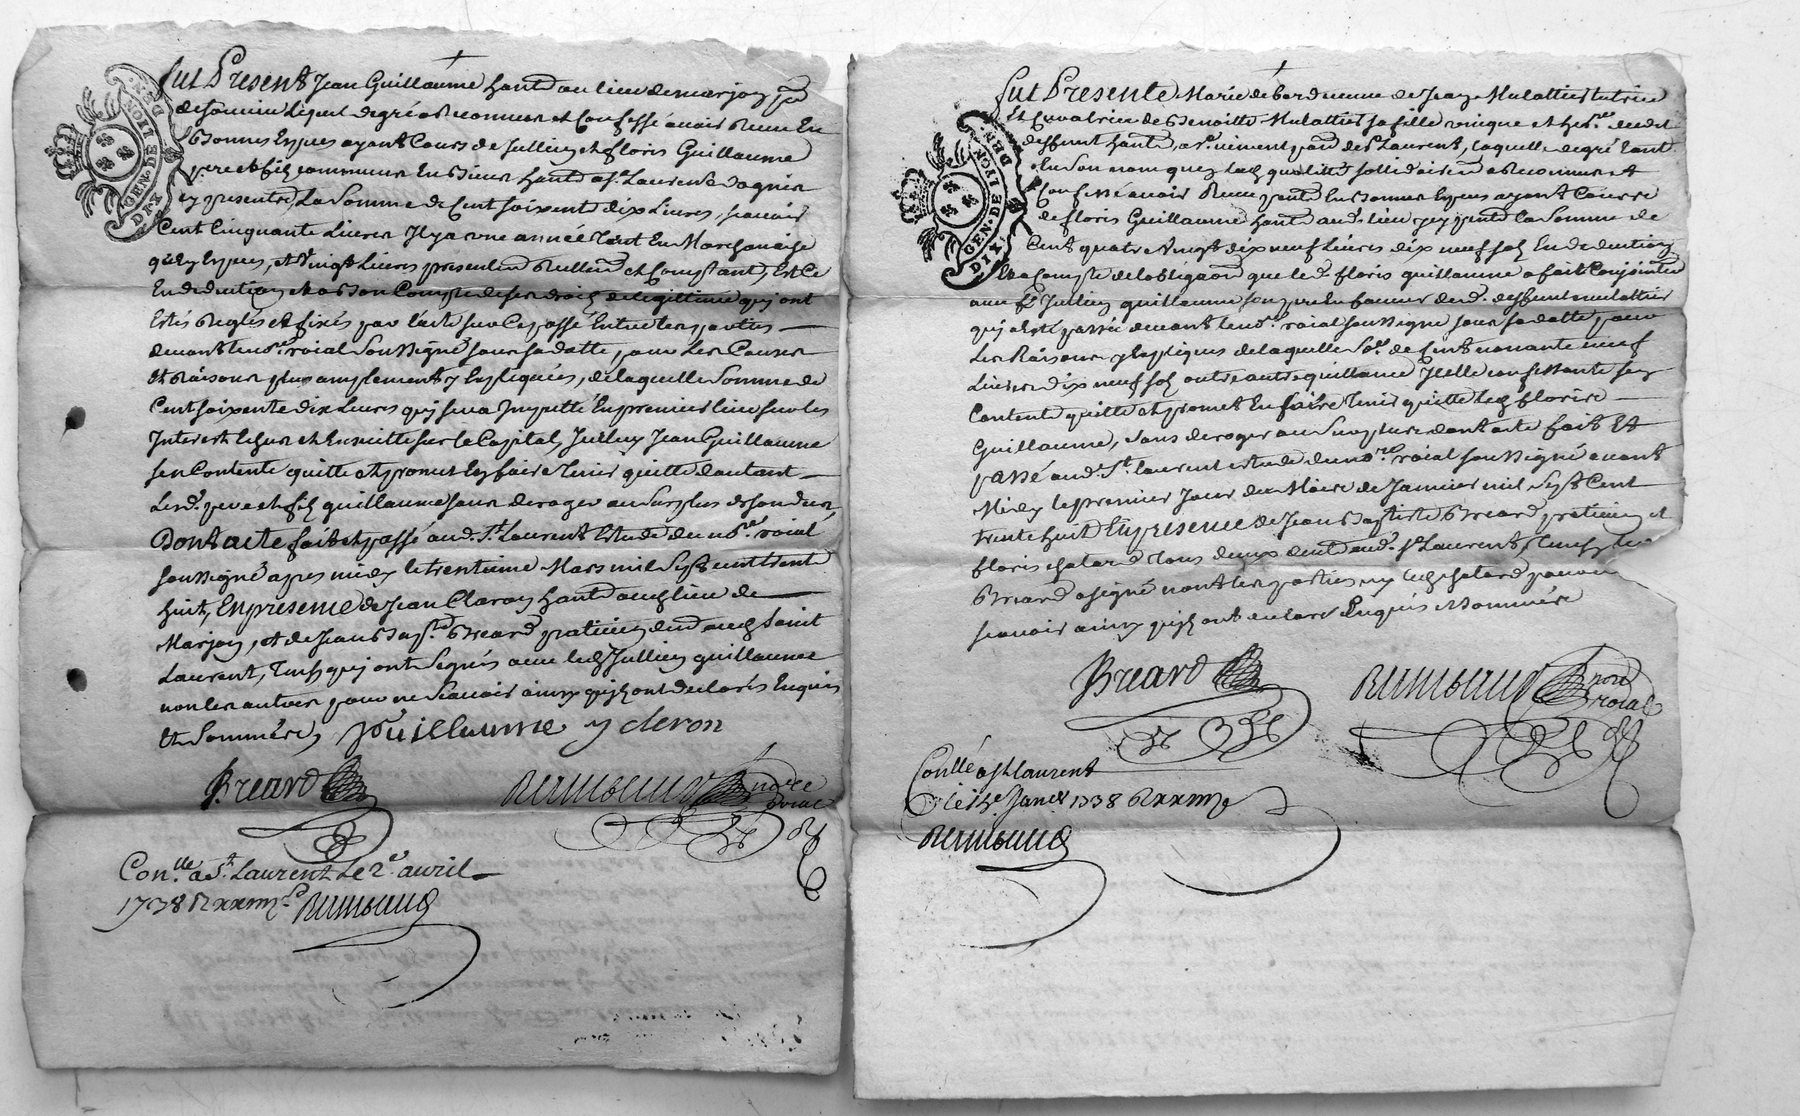 fut Present Jean Guillaume habitt au lieu de marjon pssé
de soucieu lequel de gré a Reconneu et Confessé avoir Receu En
Bonnes Espes ayant Cours de Jullien et floris Guillaume
pere et fils communs En Biens habitt a st Laurens
cy presents, La Somme de Cent soixent dix Livres, scavoir
Cent Cinquante Livres Il y a une année tant En Marchandise
qu'en Espes, et Vingt Livres presentem Reellem et Comptant, Est Ce
En deduction et a Bon Compte de ses droits de legittime quj ont
Estés Reglés et fixés par l'acte sur Ce passé Entre les parties
devant le nore roial Soussigné sous sa datte, pour Les Causes
et Raisons plus amplement y Expliquées, de laquelle Somme de
Cent soixente dix Livres quj sera Imputté En premier lieu sur les
Interest Echus et Ensuitte sur le Capital, Jcelluy Jean Guillaume
sen Contente quitte et promet En faire tenir quitte d'autant
Lesd. pere et fils guillaume sans deroger au Surplus de son deu,
Dont acte fait et passé aud. St. Laurent Estude du nore. roial
soussigné apres midy le trentieme Mars mil Sept cent trente
huit, En presence de Jean Claron habitt audit lieu de
Marjon, et de Jean Bapte. Breard praticien demt audit Saint
Laurent, tous quj ont Signés avec ledit Jullien guillaume
non les autres pour ne Scavoir ainsy qu'ils ont declarés Enquis
et Sommés,
J Guillaume
y cleron
Breard
nore
roial
Con.lle a St. Laurent Le 2e avril
1738
fut Presente Marie de bard veuve de Jean Mulattier tutrice
Et Curatrice de Benoitte Mulattier sa fille unique et herre. dudit
deffunt habitt a St. Laurent, laquelle de gré tant
En Son nom qu'en lad. qualitté sollidairem a Reconneu et
Confessé avoir Receu En Bonnes Espes ayant Cours
de floris Guillaume habitt aud. lieu cy pnt La Somme de
Cent quatre Vingt dix neuf Livres dix neuf sols En deduction
Et a Compte de l'obligaon que led. floris guillaume a fait Conjointem
avec Jullien guillaume son pere En faveur dud. deffunt mulattier
quj a Esté passée devant le nore. roial soussigné sous sa datte pour
Les Raisons y Expliqués de laquelle Some. de Cent nonante neuf
Livres dix neuf sols outre autre quittance Jcelle confessante sen
Contente quitte et promet En faire tenir quitte led. floris
Guillaume, sans deroger au Surplus dont acte fait Et
passé aud. St. laurent estude du nore. roial soussigné avant
Midy le premier Jour du Mois de Janvier mil Sept Cent
trente huit En presence de Jean Baptiste Breard praticien et
floris chatard tous deux demt aud. St Laurent,
Breard a signé non les parties ny ledit chatard pour ne
scavoir ainsy qu'ils ont declaré Enquis et Sommés
Breard
nore
roial
Conllé a St Laurent
le 14e Janer 1738